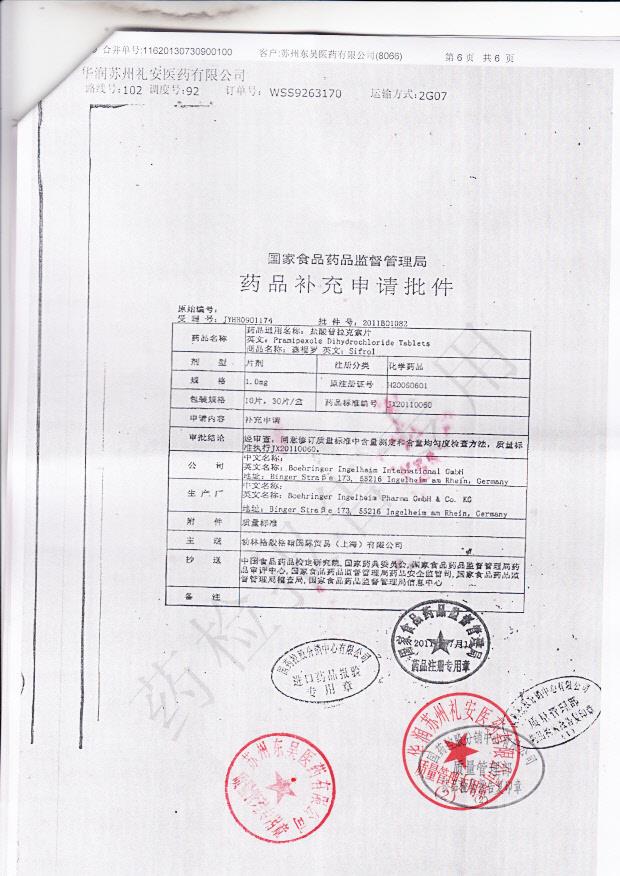 合并单号:11620130730900100 客户:苏州东吴医药有限公司(8066) 第 6 页 共 6 页
华润苏州礼安医药有限公司
路线号:102 调度号:92 订单号: WSS9263170 运输方式:2G07
国家食品药品监督管理局
药品补充申请批件
原始编号:
受理号: JYHB0901174 批件号: 2011B01082
药品名称
药品通用名称: 盐酸普拉克索片
英文: Pramipexole Dihydrochloride Tablets
商品名称: 森福罗 英文: Sifrol
剂型 片剂 注册分类 化学药品
规格 1.0mg 原注册证号 H20060601
包装规格 10片, 30片/盒 药品标准编号 JX20110060
申请内容 补充申请
审批结论 经审查, 同意修订质量标准中含量测定和含量均匀度检查方法, 质量标
准执行JX20110060.
公司
中文名称:
英文名称: Boehringer Ingelheim International GmbH
地址: Binger Straβe 173, 55216 Ingelheim am Rhein, Germany
生产厂
中文名称:
英文名称: Boehringer Ingelheim Pharma GmbH & Co. KG
地址: Binger Straβe 173, 55216 Ingelheim am Rhein, Germany
附件 质量标准
主送 勃林格殷格翰国际贸易（上海）有限公司
抄送 中国食品药品检定研究院, 国家药典委员会, 国家食品药品监督管理局药
品审评中心, 国家食品药品监督管理局药品安全监管司, 国家食品药品监
督管理局稽查局, 国家食品药品监督管理局信息中心
备注
国家食品药品监督管理局
药品注册专用章
国药控股分销中心有限公司
进口药品报验
专用章
苏州东吴医药有限公司
华润苏州礼安医药有限公司
质量管理部
(2)
国药控股分销中心有限公司
质量管理部
(2)
质量管理部
(1)
药检
用